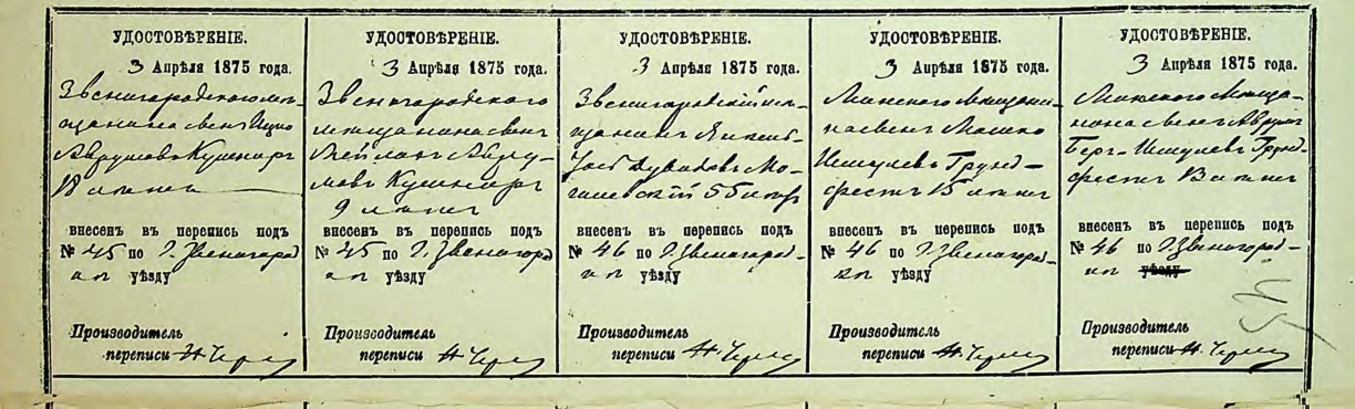 УДОСТОВѢРЕНІЕ.
3 Апрѣля 1875 года.
Звенигородского мѣ-
щанина сынъ Ицко
Аврумовъ Кушниръ
18 лѣтъ
внесенъ въ перепись подъ
№ 45 по г. Звенигород
уѣзду
Производитель
переписи
УДОСТОВѢРЕНІЕ.
3 Апрѣля 1875 года.
Звенигородского
мѣщанина сынъ
Аврумовъ Кушниръ
9 лѣтъ
внесенъ въ перепись подъ
№ 45 по г. Звенигород
уѣзду
Производитель
переписи
УДОСТОВѢРЕНІЕ.
3 Апрѣля 1875 года.
Звенигородскій мѣ-
щанинъ
Мо-
гилевскій 55 лѣтъ
внесенъ въ перепись подъ
№ 46 по г. Звенигород-
уѣзду
Производитель
переписи
УДОСТОВѢРЕНІЕ.
3 Апрѣля 1875 года.
Минского мѣщани-
на сынъ Мошко
Грунд-
15 лѣтъ
внесенъ въ перепись подъ
№ 46 по г. Звенигород-
уѣзду
Производитель
переписи
УДОСТОВѢРЕНІЕ.
3 Апрѣля 1875 года.
Минского Мѣща-
нина сынъ Аврумъ
Берг- Грунд-
13 лѣтъ
внесенъ въ перепись подъ
№ 46 по г. Звенигород-
уѣзду
Производитель
переписи